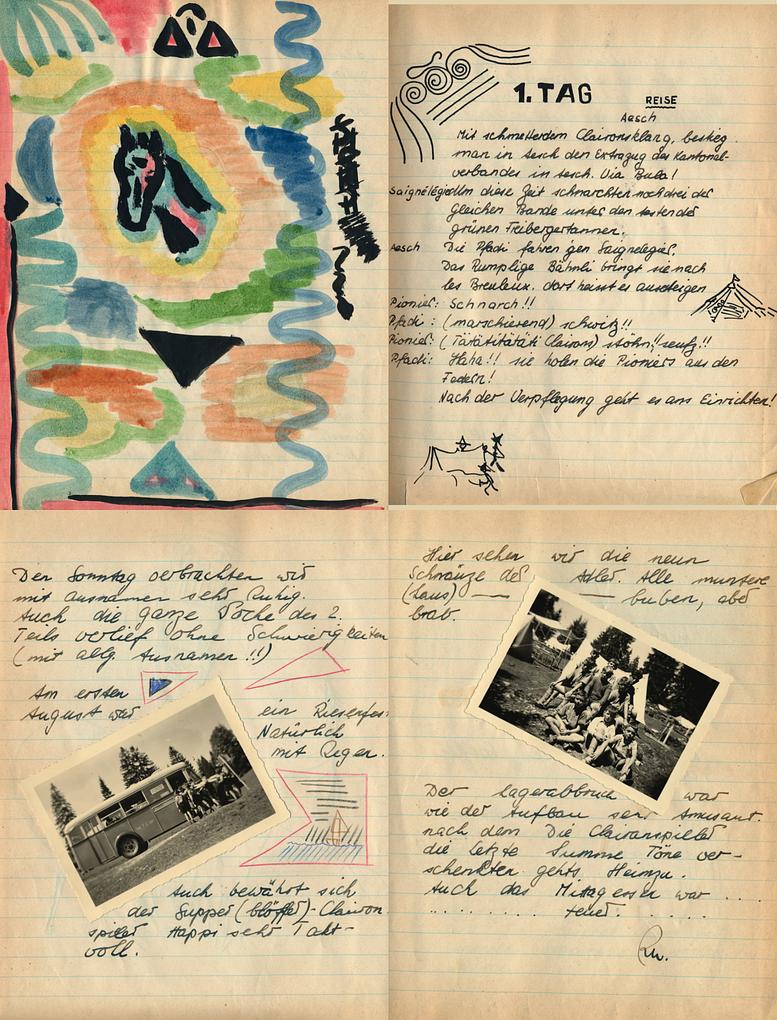 1. TAG
REISE
Aesch
Mit schmetterdem Claironsklang, bestieg
man in Aesch den Extrazug des Kantonal-
verbandes in Aesch. Via Buba!
Saignelégier
Um diese Zeit schnarchten noch drei der
gleichen Bande unter den
grünen Freibergertannen.
Aesch Die Pfadi fahren gen Saignelegier.
Das Rumplige Bähnli bringt sie nach
les Breuleux. dort heisst es aussteigen
Pionier: Schnarch!!
Pfadi: (marschierend) schwitz!!
Pionier: (Tärätitäräti Clairons) stöhn!! seufz!!
Pfadi: Haha!! sie holen die Pioniers aus den
Federn!
Nach der Verpflegung geht es ans Einrichten!
Den Sonntag verbrachten wir
mit ausnamen sehr Ruhig.
Auch die ganze Woche des 2.
Teils verlief ohne Schwierigkeiten
(mit allg. Ausnamen!!)
Am ersten
August war
ein Riesenfes
Natürlich
mit Regen.
Auch bewährt sich
der Supper (blöffer)-Clairon
spieler Happi sehr Takt-
voll.
Hier sehen wir die neun
Schwänze der Adler. Alle muntere
(Laus) — — buben, aber
brav.
Der Lagerabbruch war
wie der Aufbau sehr Amüsant.
nach dem Die Claironspieler
die letzte Summe Töne ver-
schenkten gehts Heimzu.
Auch das Mittagessen war ....
......... teuer. .....